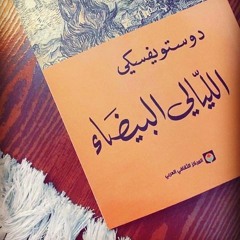 دوستويفسكي
الليالي البيضاء
المركز الثقافي العربي